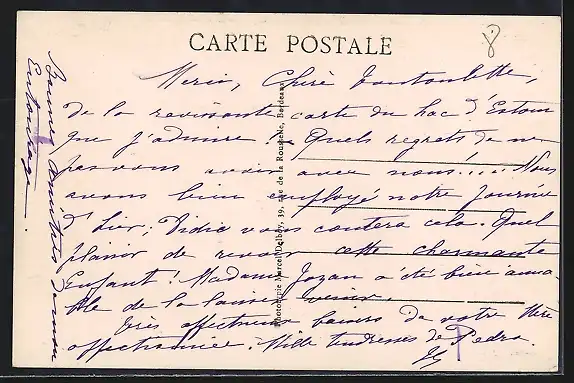 CARTE POSTALE
Merci, Chère Toutoulette,
de la ravissante carte du lac d'Estom
que j'admire. Quels regrets de ne
pas vous avoir avec nous!.... Nous
avons bien employé notre journée
d'hier; Didie vous contera cela. Quel
plaisir de revoir cette charmante
Enfant! Madame Jozan a été bien aima-
ble de la laisser venir.
Très affectueux baisers de votre Mère
affectionnée. Mille tendresses de Pedro.
Bonnes amitiés
Entourage.
Phototypie Marcel Delboy, 39, rue de la Rousselle, Bordeaux